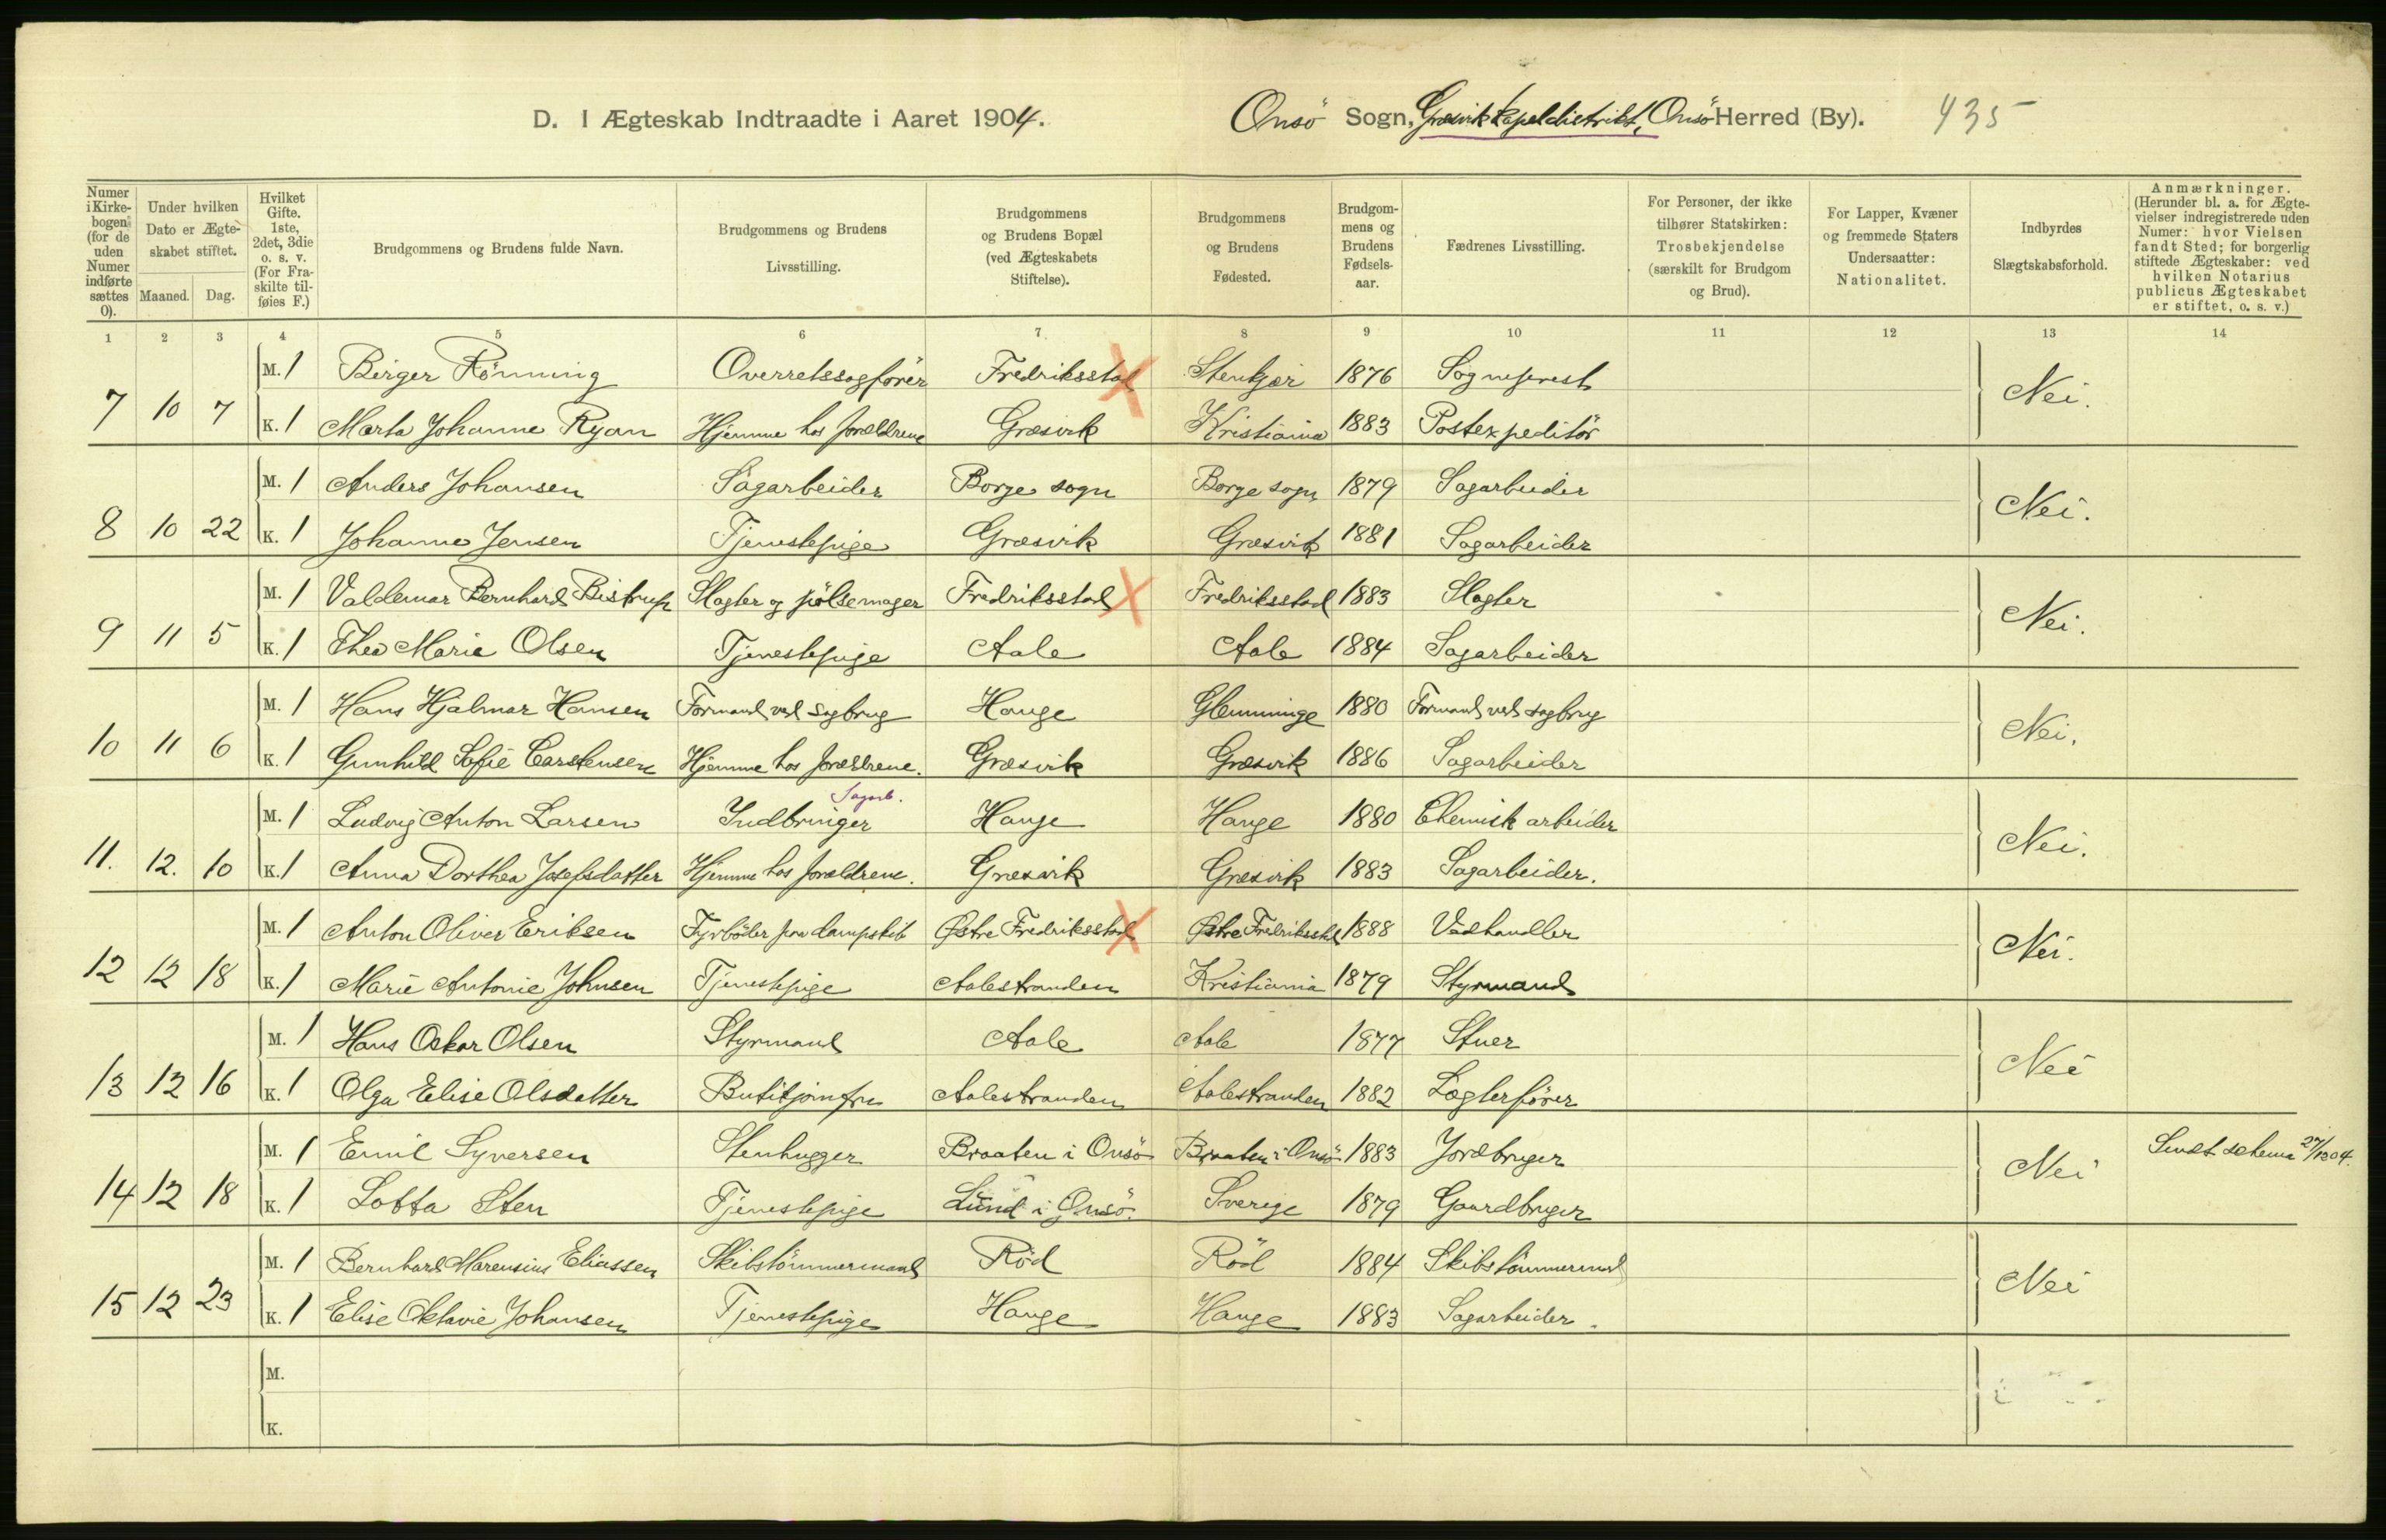 D. I Ægteskab Indtraadte i Aaret 1904. Onsö Sogn, Græsvik kapeldistrikt, Onsö Herred (By). 435
Numer i Kirkebogen (for de uden Numer indførte sættes 0).
Under hvilken Dato er Ægteskabet stiftet.
Maaned. Dag.
Hvilket Gifte. 1ste, 2det, 3die o. s. v. (For Fraskilte tilføies F.)
Brudgommens og Brudens fulde Navn.
Brudgommens og Brudens Livsstilling.
Brudgommens og Brudens Bopæl (ved Ægteskabets Stiftelse).
Brudgommens og Brudens Fødested.
Brudgommens og Brudens Fødselsaar.
Fædrenes Livsstilling.
For Personer, der ikke tilhører Statskirken: Trosbekjendelse (særskilt for Brudgom og Brud).
For Lapper, Kvæner og fremmede Staters Undersaatter: Nationalitet.
Indbyrdes Slægtskabsforhold.
Anmærkninger. (Herunder bl. a. for Ægtevielser indregistrerede uden Numer: hvor Vielsen fandt Sted; for borgerlig stiftede Ægteskaber: ved hvilken Notarius publicus Ægteskabet er stiftet, o. s. v.)
1 2 3 4 5 6 7 8 9 10 11 12 13 14
M. 1 Birger Rönning Overretssagförer Fredriksstad Stenkjær 1876 Sogneprest
7 10 7 K. 1 Marta Johanne Ryan Hjemme hos forældrene Græsvik Kristiania 1883 Postexpeditör Nei.
M. 1 Anders Johansen Sagarbeider Borge sogn Borge sogn 1879 Sagarbeider
8 10 22 K. 1 Johanne Jensen Tjenestepige Græsvik Græsvik 1881 Sagarbeider Nei.
M. 1 Valdemar Bernhard Bistrup Slagter og pölsemager Fredriksstad Fredriksstad 1883 Slagter
9 11 5 K. 1 Thea Marie Olsen Tjenestepige Aale Aale 1884 Sagarbeider Nei.
M. 1 Hans Hjalmar Hansen Formand ved sagbrug Hauge Glemminge 1880 Formand ved sagbrug
10 11 6 K. 1 Gunhild Sofie Carstensen Hjemme hos forældrene. Græsvik Græsvik 1886 Sagarbeider Nei.
Sagarb.
M. 1 Ludvig Anton Larsen Indbringer Hauge Hauge 1880 Chemisk arbeider
11. 12. 10 K. 1 Anna Dorthea Josefsdatter Hjemme hos forældrene. Græsvik Græsvik 1883 Sagarbeider. Nei.
M. 1 Anton Oliver Eriksen Fyrböder paa dampskib Østre Fredriksstad Østre Fredriksstad 1888 Vedhandler
12 12 18 K. 1 Marie Antonie Johnsen Tjenestepige Aalestranden Kristiania 1879 Styrmand Nei.
M. 1 Hans Oskar Olsen Styrmand Aale Aale 1877 Stuer
13 12 16 K. 1 Olga Elise Olsdatter Butikjomfru Aalestranden Aalestranden 1882 Lægterförer Nei
M. 1 Emil Syversen Stenhugger Braaten i Onsö Braaten i Onsö 1883 Jordbruger Sendt schema 27/1 1904.
14 12 18 K. 1 Lotta Sten Tjenestepige Lund i Onsö. Sverige 1879 Gaardbruger Nei
M. 1 Bernhard Marensius Eliassen Skibstömmermand Röd Röd 1884 Skibstömmermand
15 12 23 K. 1 Elise Oktavie Johansen Tjenestepige Hauge Hauge 1883 Sagarbeider. Nei
M.
K.